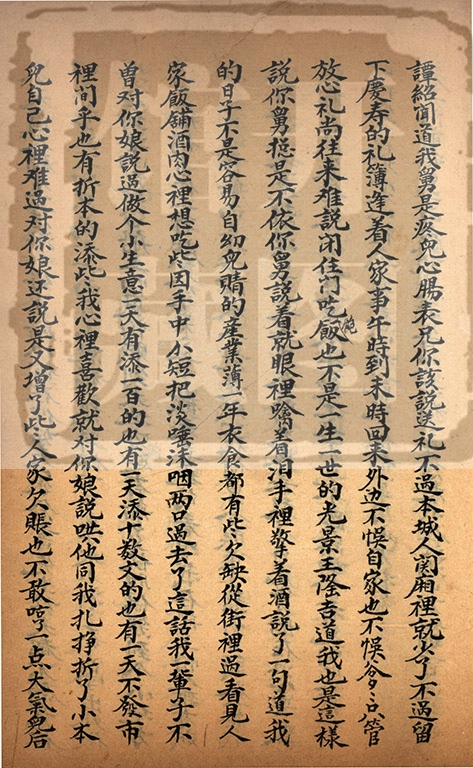 譚紹聞道我舅是疼兒心腸表兄你該説送礼不過本城人関廂裡就少了不過留
下慶寿的礼簿逢着人家事午時到未時回來外边不悮自家也不悮爹〻只管
放心礼尚往来难説闭住門吃飯也不是一生一世的光景王隆吉道我也是這樣
説你舅捴是不依你舅説着就眼裡噙着泪手裡擎着酒説了一句道我
的日子不是容易自幼兒䝼的產業薄一年衣食都有些欠缺從街裡過看見人
家飯鋪酒肉心裡想吃些因手中小短把淡唾沫咽两口過去了這話我一輩子不
曽对你娘説過做个小生意一天有添一百的也有一天添十数文的也有一天不發市
裡间乎也有折本的添些我心裡喜歡就对你娘説哄他同我扎挣折了小本
兒自己心裡难過对你娘还説是又增了些人家欠賬也不敢哼一点大氣兒后